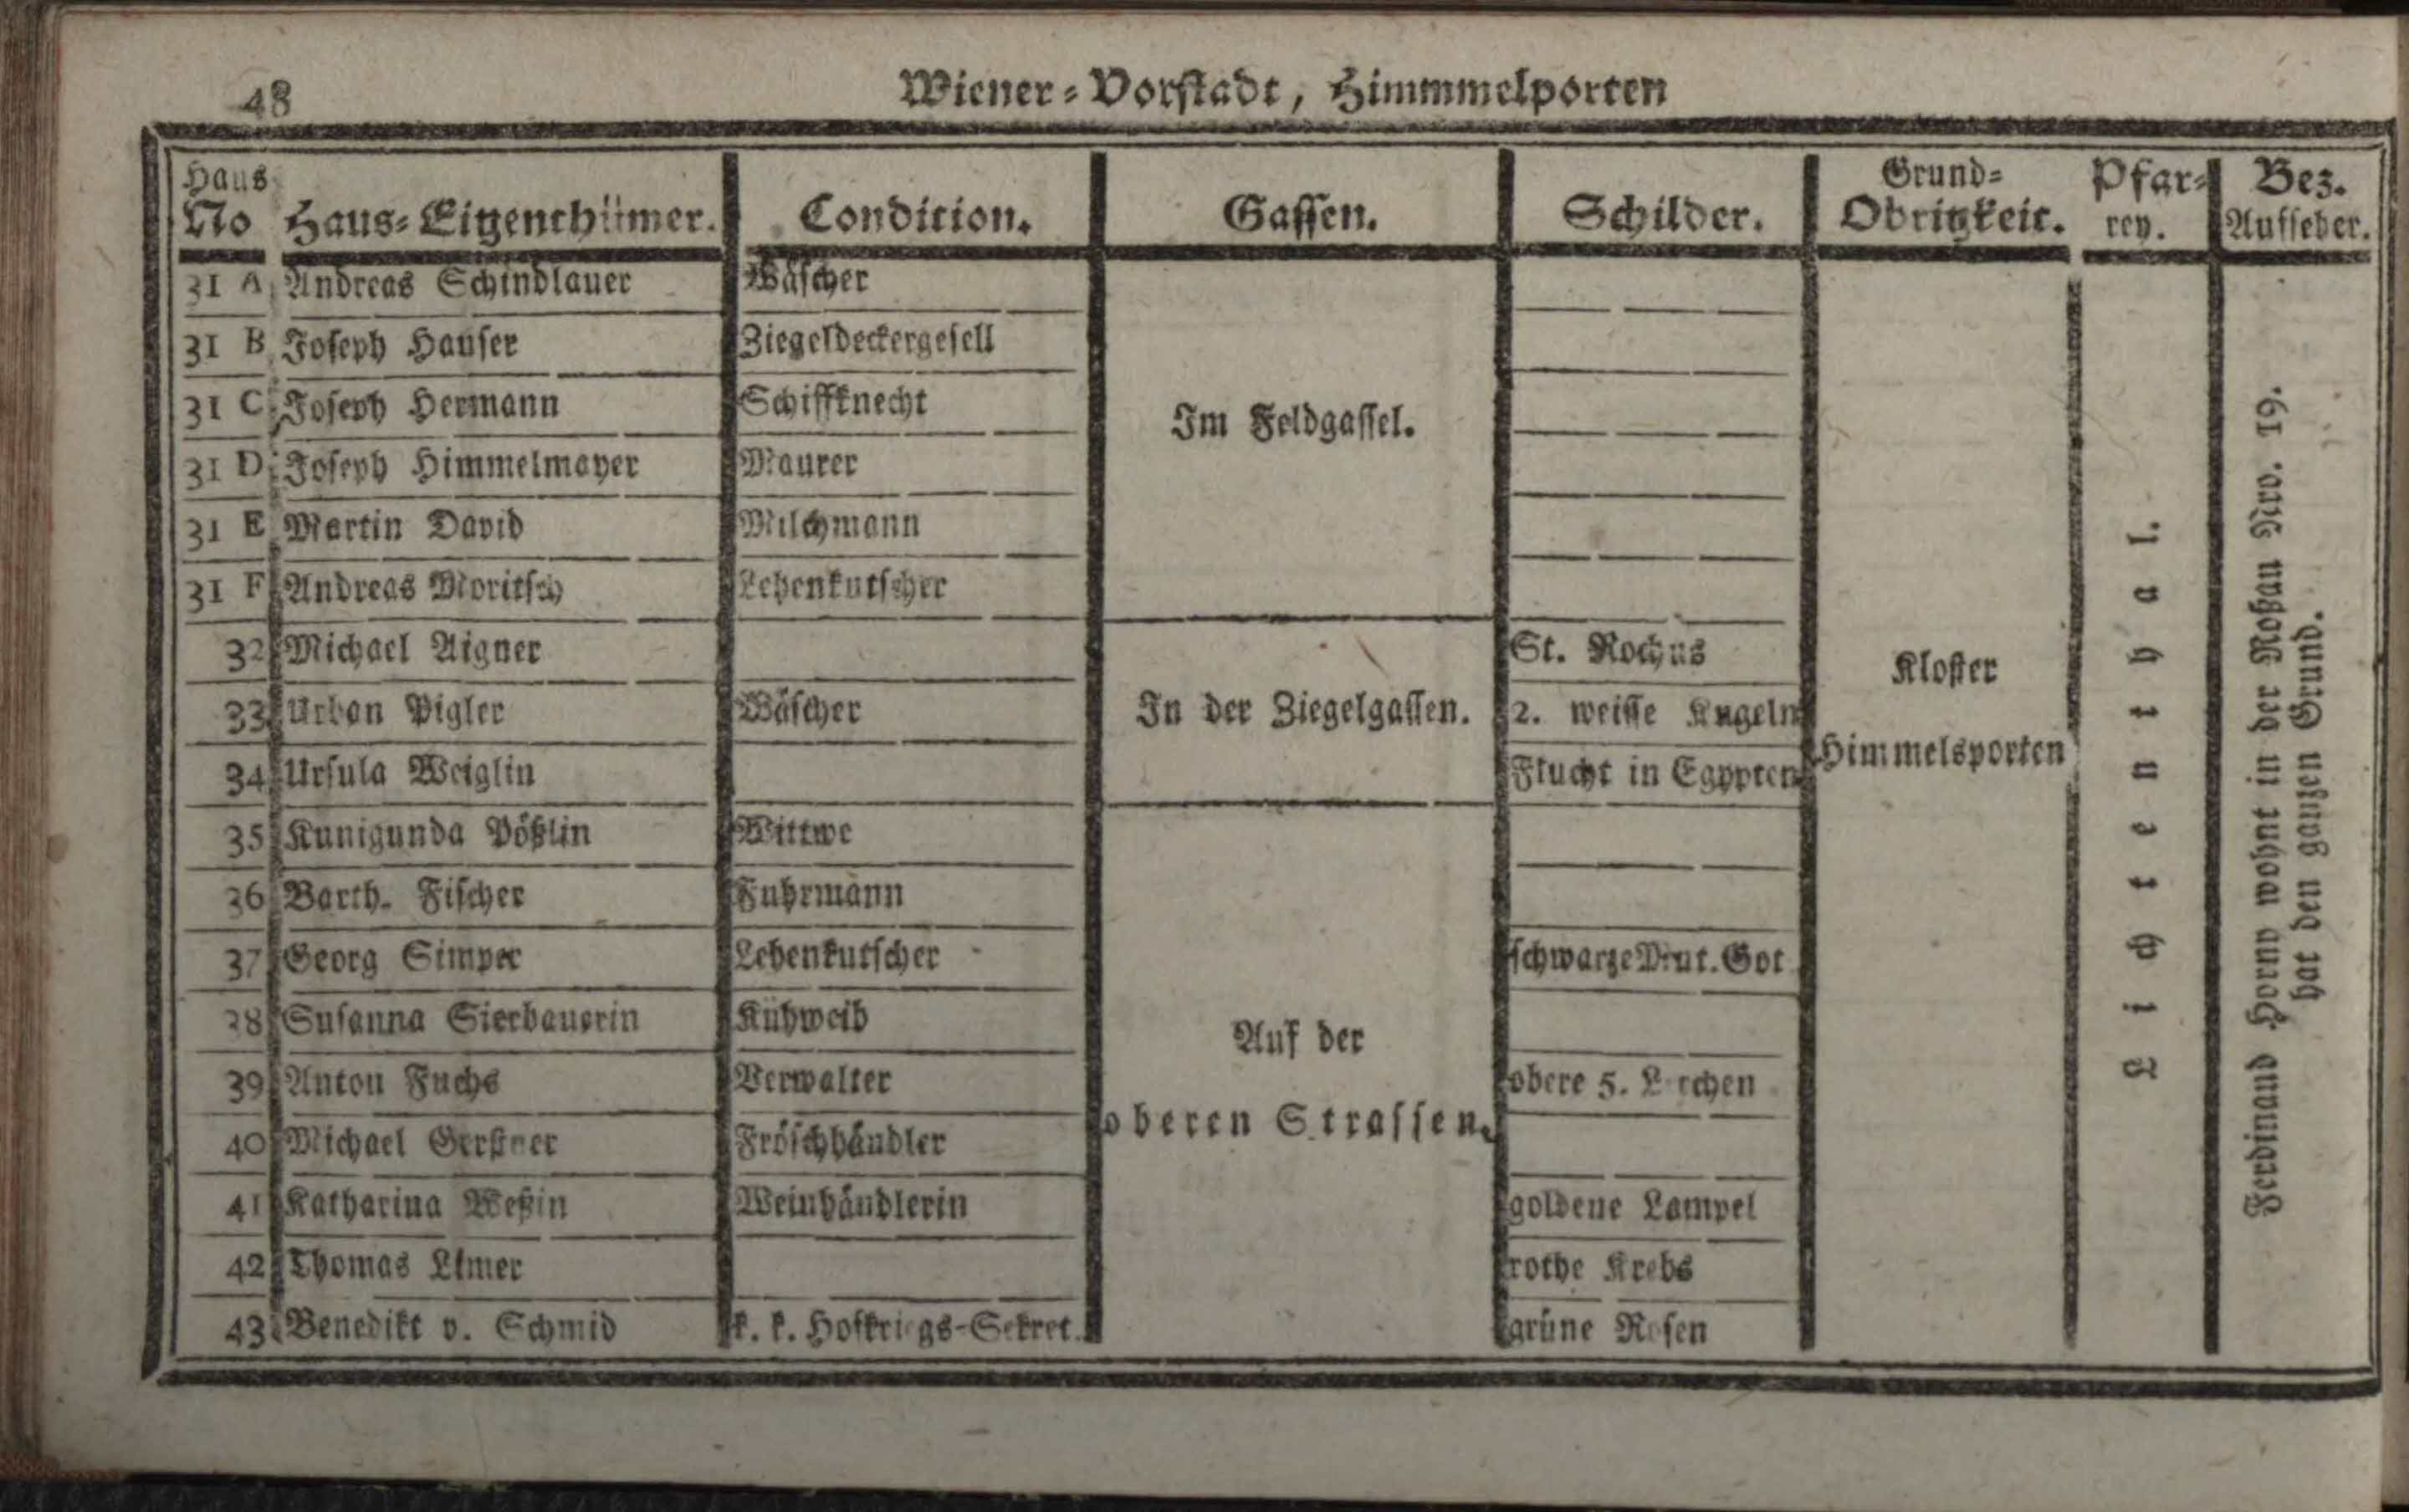 48
Wiener-Vorstadt, Himmmelporten
Haus No Haus-Eigenthümer. Condition. Gassen. Schilder. Grund-Obrigkeit. Pfar-rey. Bez. Aufseher.
31 A Andreas Schindlauer Wäscher
31 B Joseph Hauser Ziegeldeckergesell
31 C Joseph Hermann Schiffknecht
Im Feldgassel.
31 D Joseph Himmelmayer Maurer
31 E Martin David Milchmann
31 F Andreas Moritsch Lehenkutscher
32 Michael Aigner St. Rochus
33 Urban Pigler Wäscher In der Ziegelgassen. 2. weisse Kugeln
34 Ursula Weiglin Flucht in Egypten
Kloster
Himmelsporten
35 Kunigunda Pößlin Wittwe
36 Barth. Fischer Fuhrmann
37 Georg Simper Lehenkutscher schwarze Mut. Got
38 Susanna Sierbauerin Kühweib
39 Anton Fuchs Verwalter obere 5. Lerchen
Auf der
oberen Strassen.
40 Michael Gerstner Fröschhändler
41 Katharina Weßin Weinhändlerin goldene Lampel
42 Thomas rothe Krebs
43 Benedikt v. Schmid k. k. Hofkriegs-Sekret. grüne Rosen
Lichtenthal.
Ferdinand Horny wohnt in der Roßau Nro. 19.
hat den ganzen Grund.